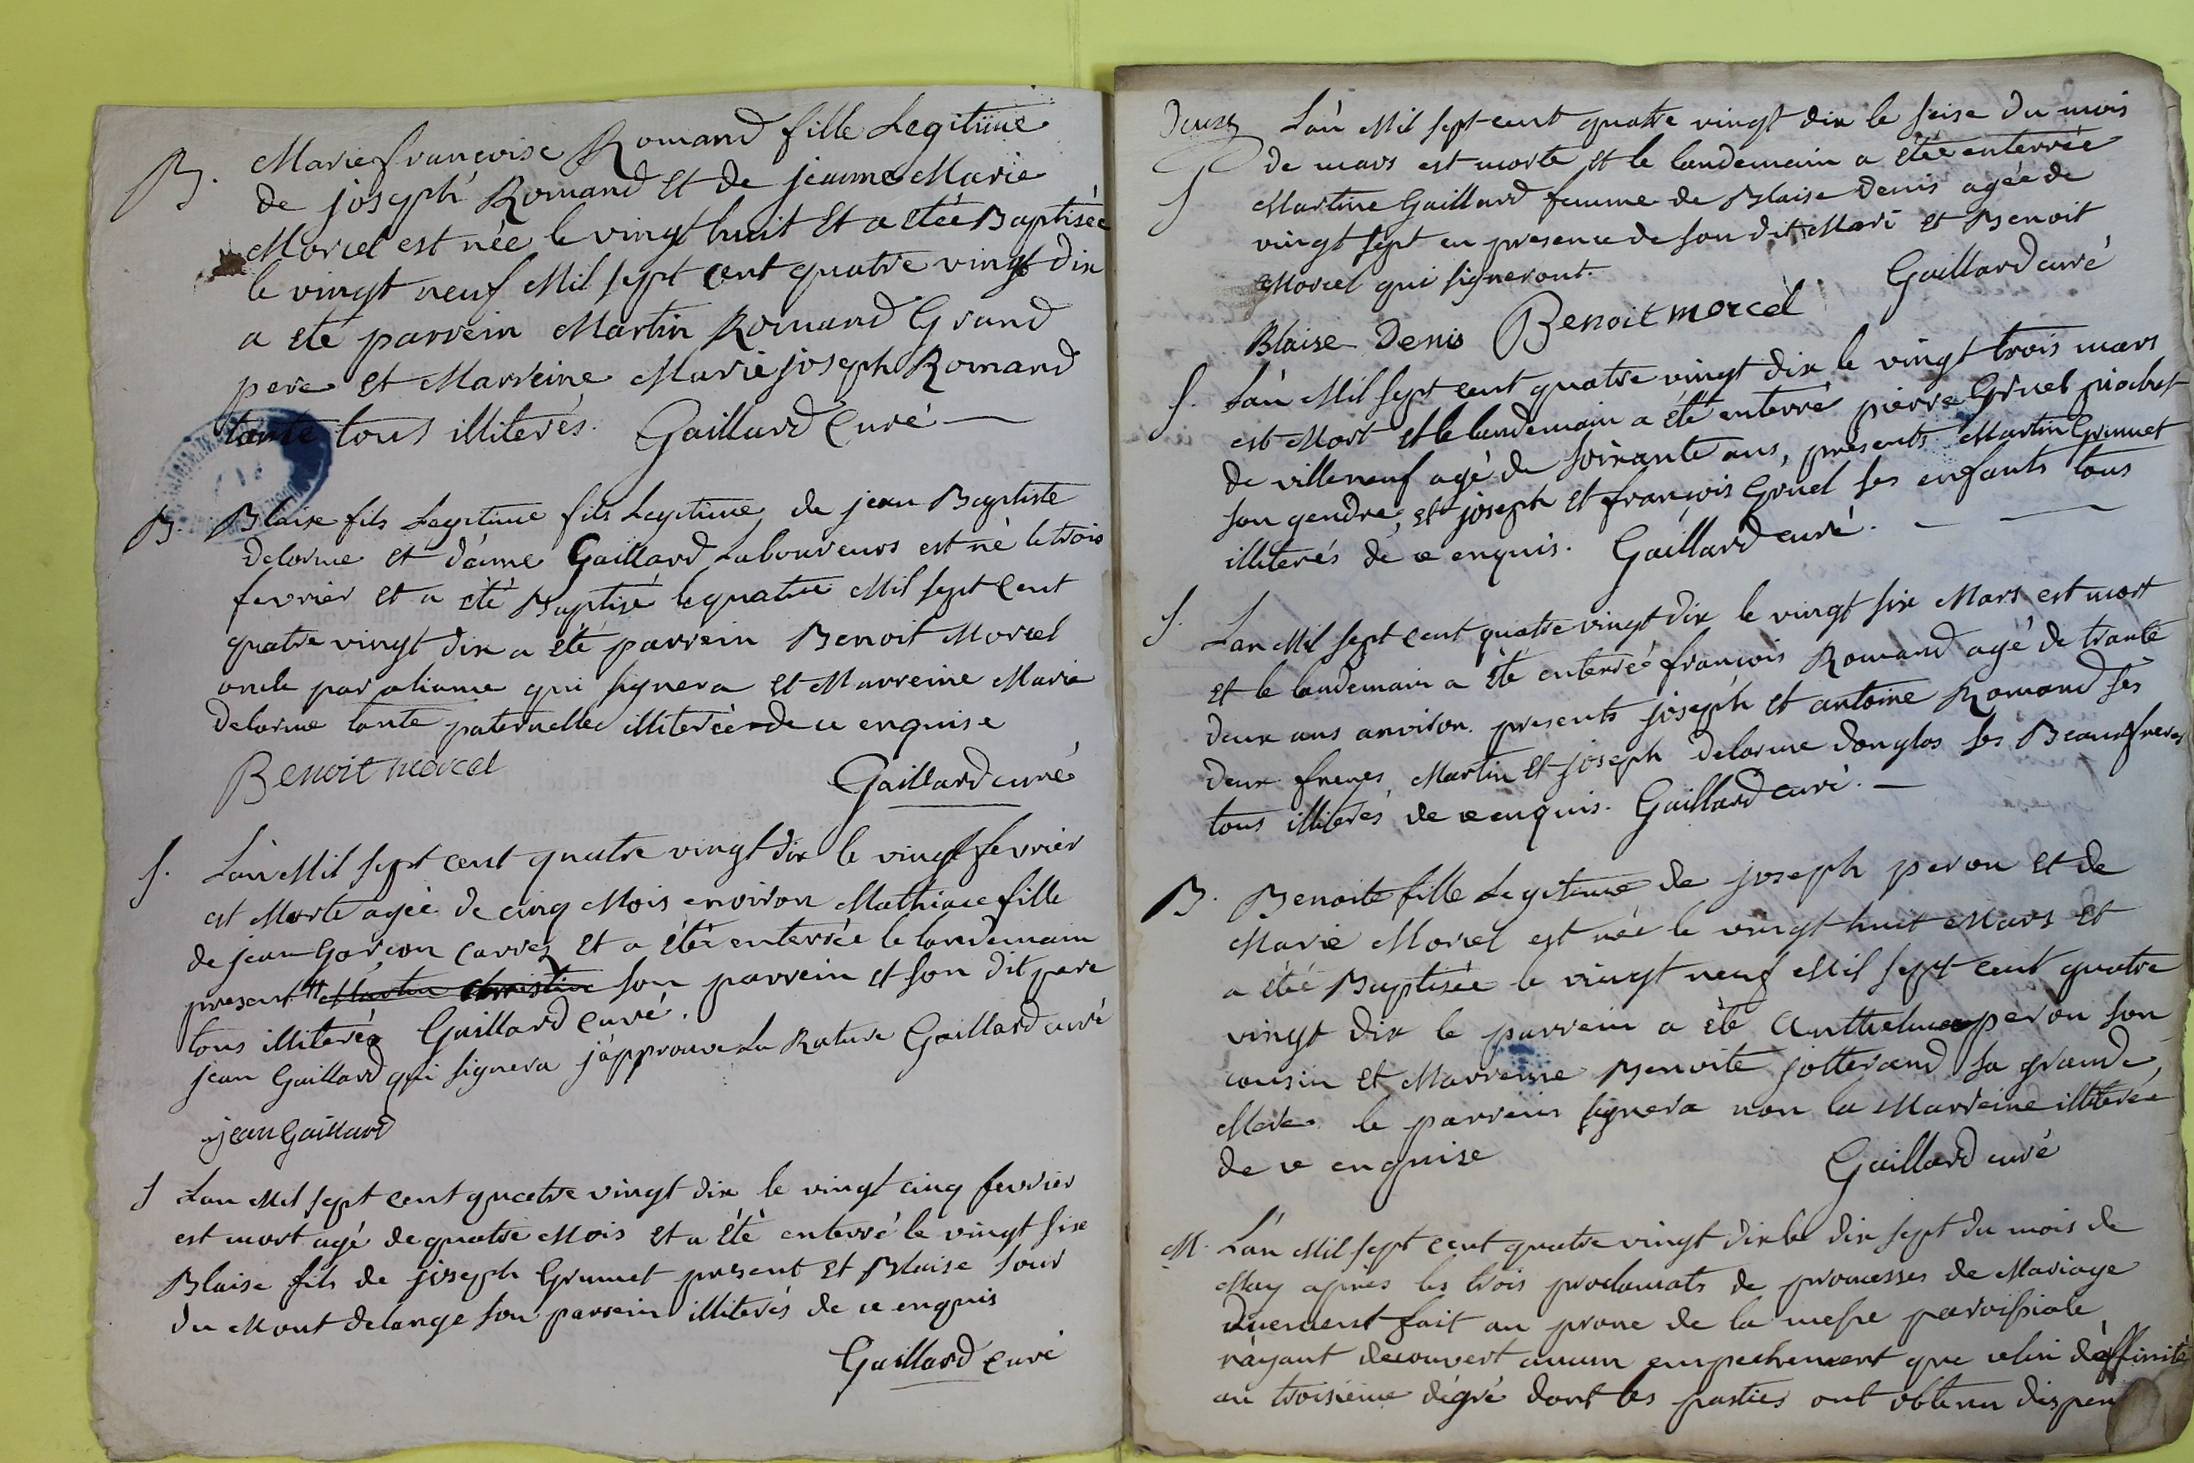 B. Marie françoise Romand fille Legitime
de joseph Romand Et de jeanne Marie
Morcel est née le vingt huit Et a etée Baptisée
le vingt neuf Mil sept cent quatre vingt dix
a eté parrein Martin Romand Grand
pere et Marreine Marie joseph Romand
tante tous illiterés. Gaillard Curé
B. Blaise fils Legitime fils Legitime de jean Baptiste
delorme et d'anne Gaillard Laboureurs est né le trois
fevrier et a eté Baptisé le quatre Mil sept Cent
quatre vingt dix a eté parrein Benoit Morcel
oncle par aliance qui signera et Marreine Marie
delorme tante paternelle illiterée de ce enquise
Benoit morcel
Gaillard curé
S. L'an Mil sept cent quatre vingt dix le vingt fevrier
est Morte agée de cinq Mois environ Mathiace fille
de jean Garçon Carrez et a étée enterrée le landemain
present # Martin Christin son parrein et son dit pere
tous illiterés Gaillard Curé.
jean Gaillard qui signera j'approuve La Rature Gaillard curé
jean Gaillard
S Lan Mil sept cent quatre vingt dix le vingt cinq fevrier
est mort agé de quatre Mois et a été enterré le vingt six
Blaise fils de joseph Grumet present et Blaise
du Mont delange son parrein illiterés de ce enquis
Gaillard Curé
Deux
L'an Mil sept cent quatre vingt dix le seise du mois
de mars est morte et le landemain a étée enterrée
S Martine Gaillard femme de Blaise Denis agée de
vingt sept en presence de son dit Mari et Benoit
Morcel qui signeront.
Gaillard curé
Blaise Denis Benoit morcel
S. L'an Mil sept cent quatre vingt dix le vingt trois mars
est Mort et le landemain a été enterré pierre Gruel
de villeneuf agé de soixante ans, presents Martin Grumet
son gendre, et joseph et françois Gruel ses enfants tous
illiterés de ce enquis. Gaillard curé.
S. Lan Mil sept cent quatre vingt dix le vingt six Mars est mort
et le landemain a été enterré françois Romand agé de trante
deux ans anviron presents joseph et antoine Romand ses
deux freres, Martin et joseph delorme donglos ses Beaux freres
tous illiterés de ce enquis. Gaillard curé.
B. Benoite fille Legitime de joseph peron et de
Marie Morcel est née le vingt huit Mars et
a été Baptisée le vingt neuf Mil sept cent quatre
vingt dix le parrein a été Anthelme peron son
cousin et Marreine Benoite jotterand sa grande
Mere. le parrein signera non la Marreine illiterée
de ce enquise
Gaillard curé
M. L'an Mil sept cent quatre vingt dix le dix sept du mois de
May apres les trois proclamats de promesses de Mariage
duement fait au prone de la messe paroissiale
n'ayant découvert aucun empechement que celui d'affinité
au troisième dégré dont les parties ont obtenu dispen